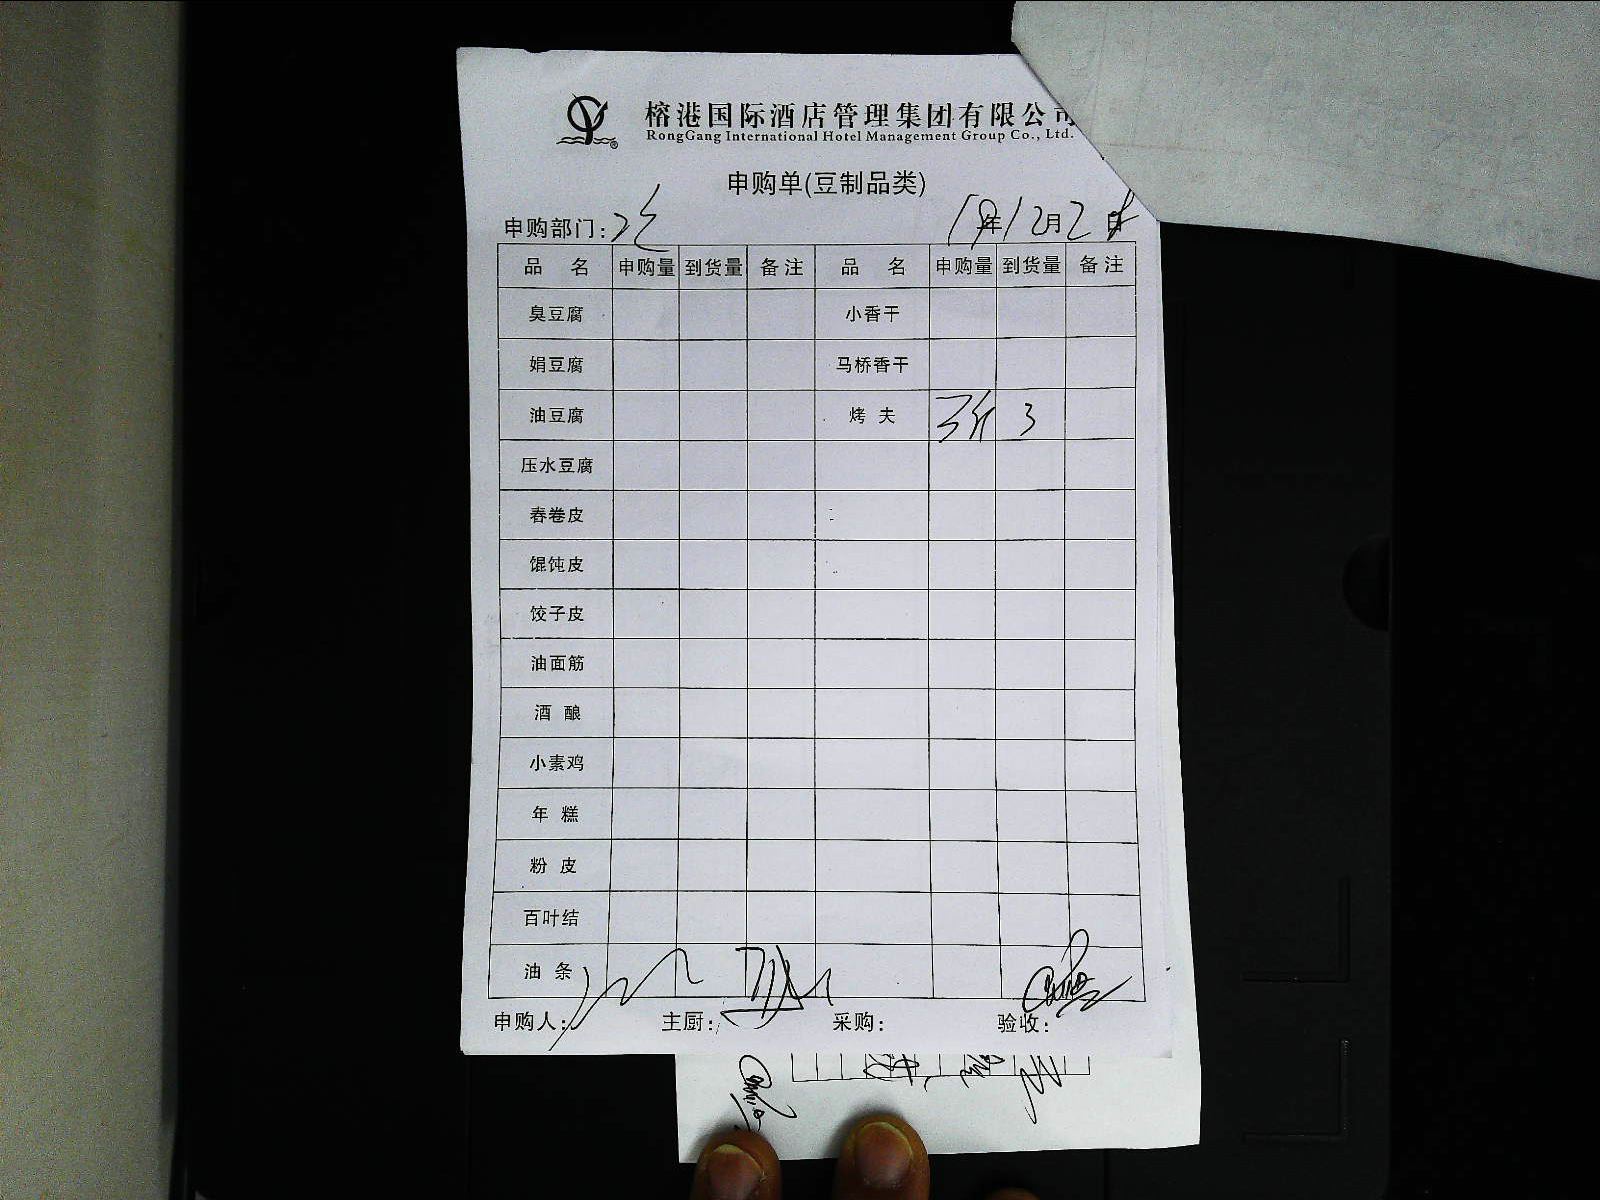 榕港国际酒店管理集团有限公司
RongGang International Hotel Management Group Co., Ltd.
申购单(豆制品类)
申购部门: 19年12月2日
品 名 申购量 到货量 备注 品 名 申购量 到货量 备注
臭豆腐 小香干
娟豆腐 马桥香干
油豆腐 烤 夫 3斤 3
压水豆腐
春卷皮
馄饨皮
饺子皮
油面筋
酒 酿
小素鸡
年 糕
粉 皮
百叶结
油 条
申购人: 主厨: 采购: 验收: